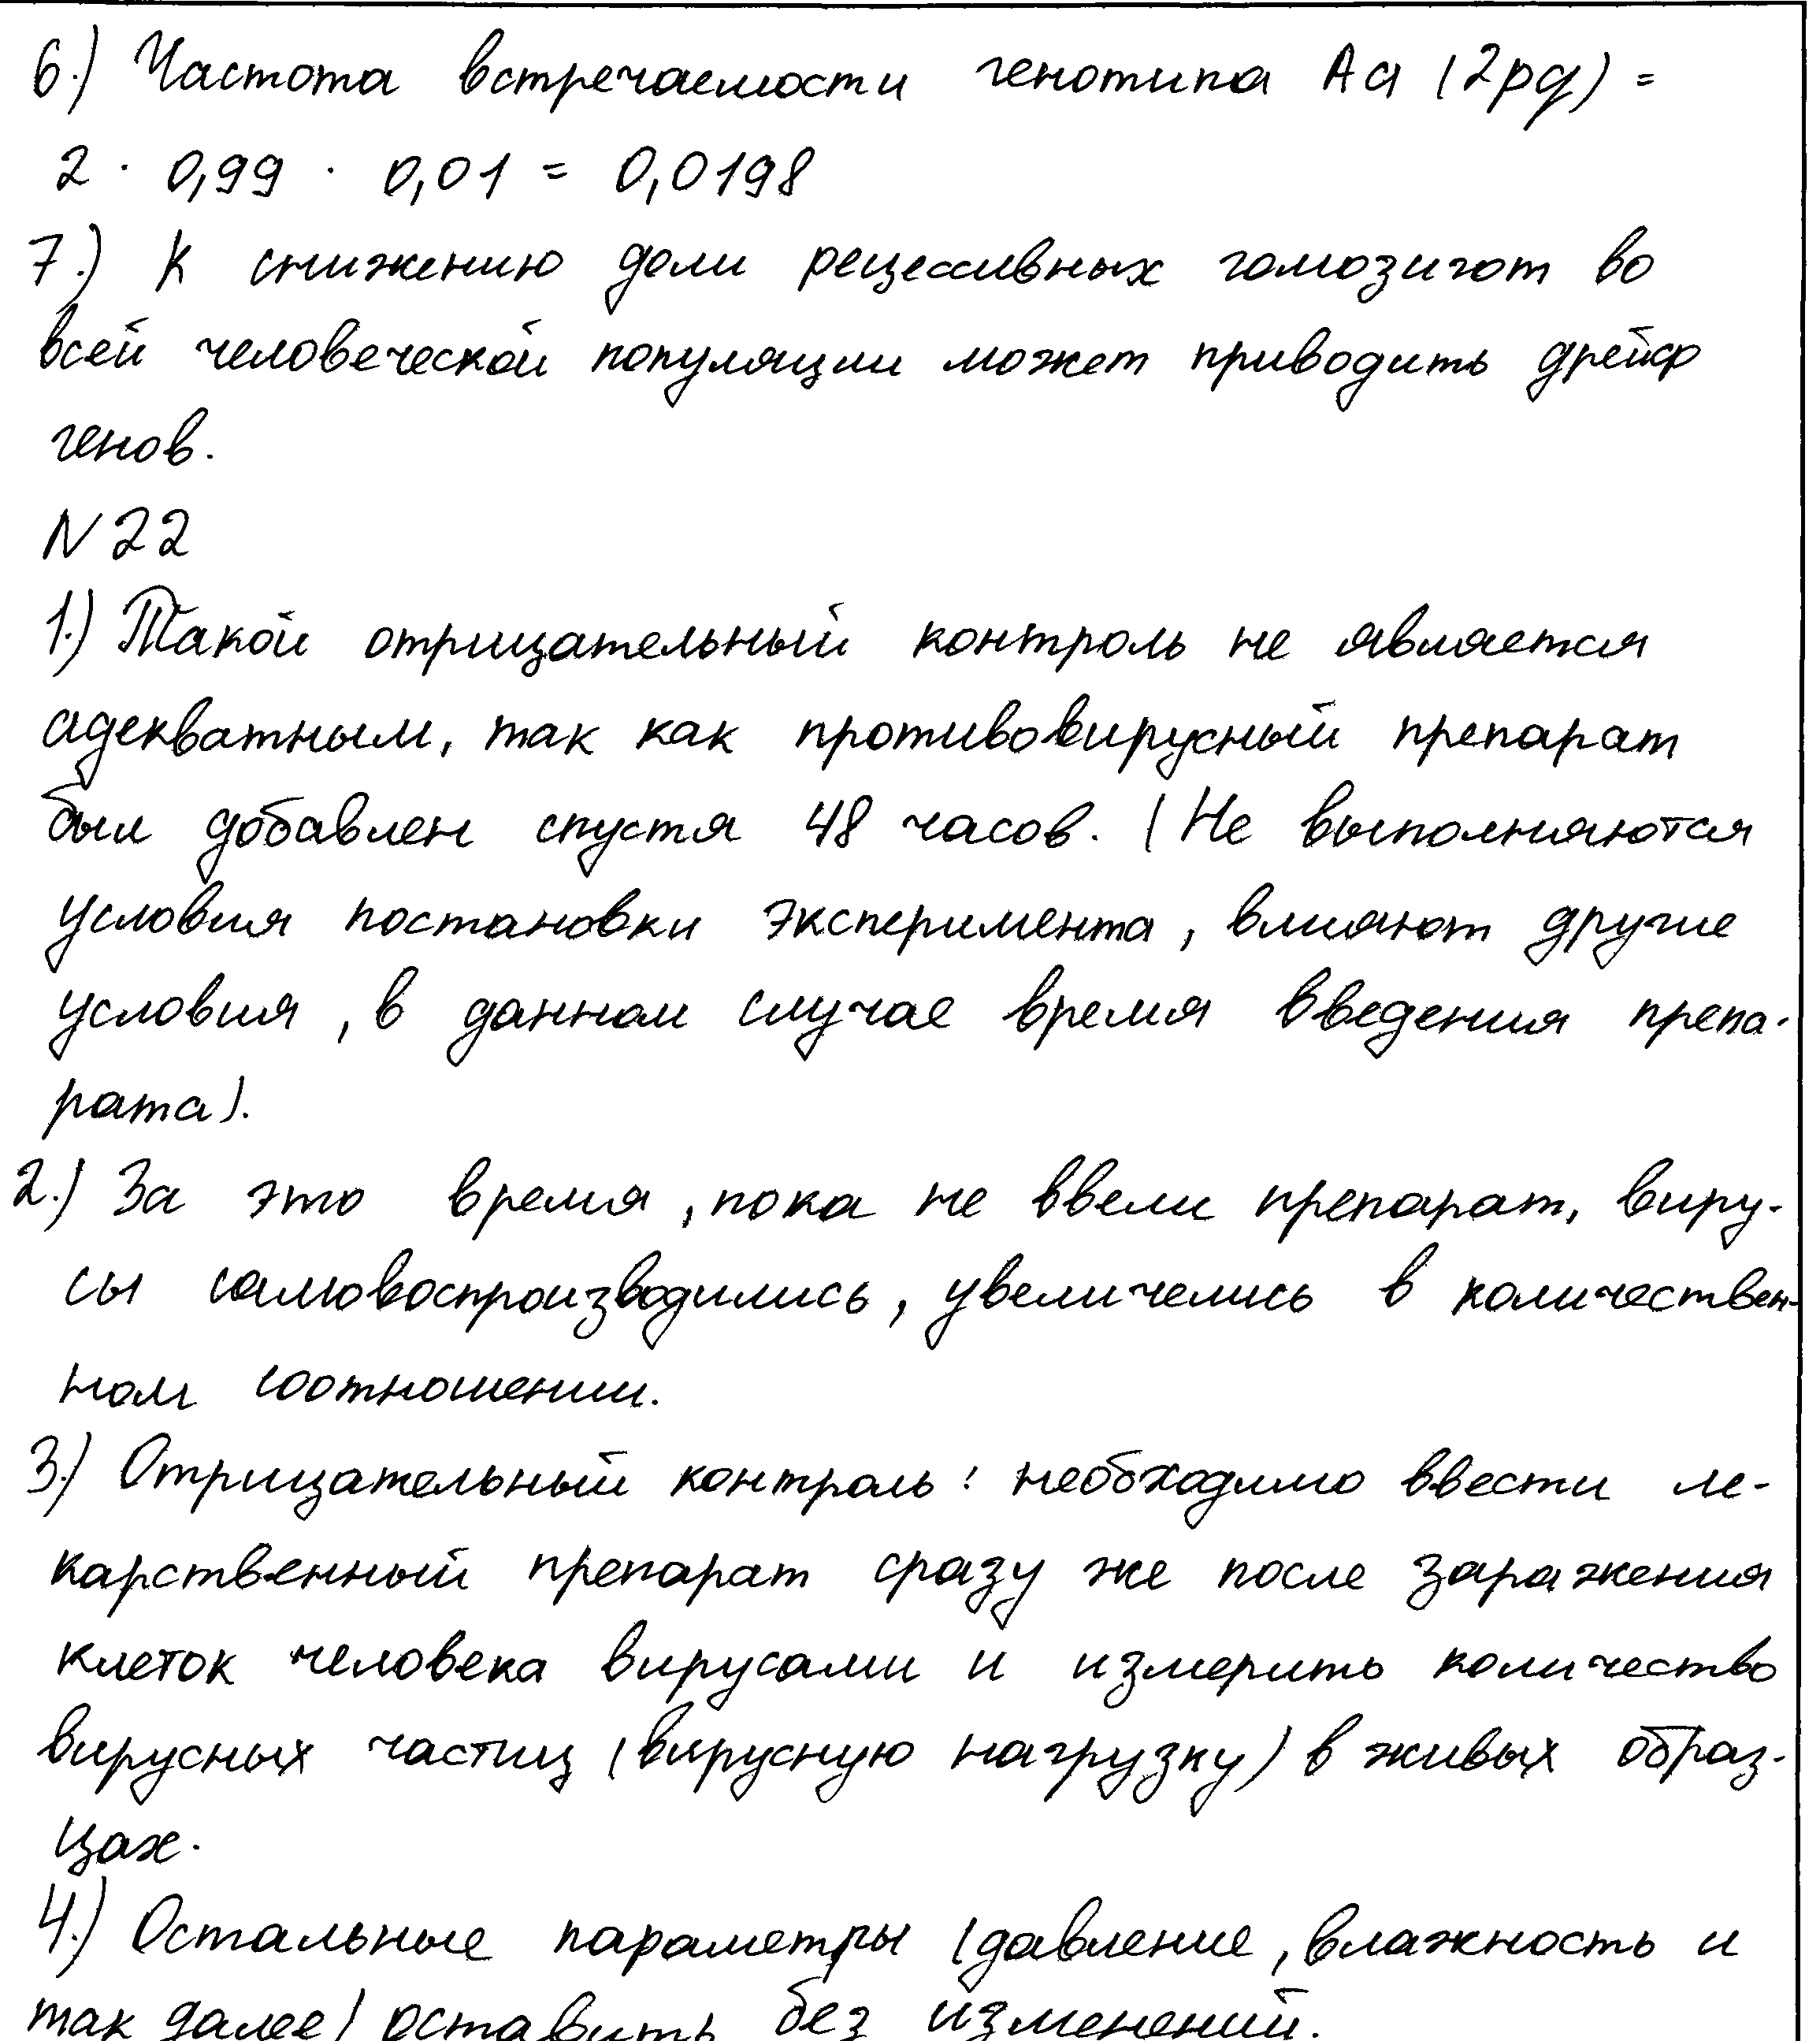 6.) Частота встречаемости генотипа Аа (2pq) =
2 · 0,99 · 0,01 = 0,0198
7.) К снижению доли рецессивных гомозигот во
всей человеческой популяции может приводить дрейф
генов.
N 22
1.) Такой отрицательный контроль не является
адекватным, так как противовирусный препарат
был добавлен спустя 48 часов. (Не выполняются
условия постановки эксперимента, влияют другие
условия, в данном случае время введения препа-
рата).
2.) За это время, пока не ввели препарат, виру-
сы самовоспроизводились, увеличелись в количествен-
ном соотношении.
3.) Отрицательный контроль: необходимо ввести ле-
карственный препарат сразу же после заражения
клеток человека вирусами и измерить количество
вирусных частиц (вирусную нагрузку) в живых образ-
цах.
4.) Остальные параметры (давление, влажность и
так далее) оставить без изменений.